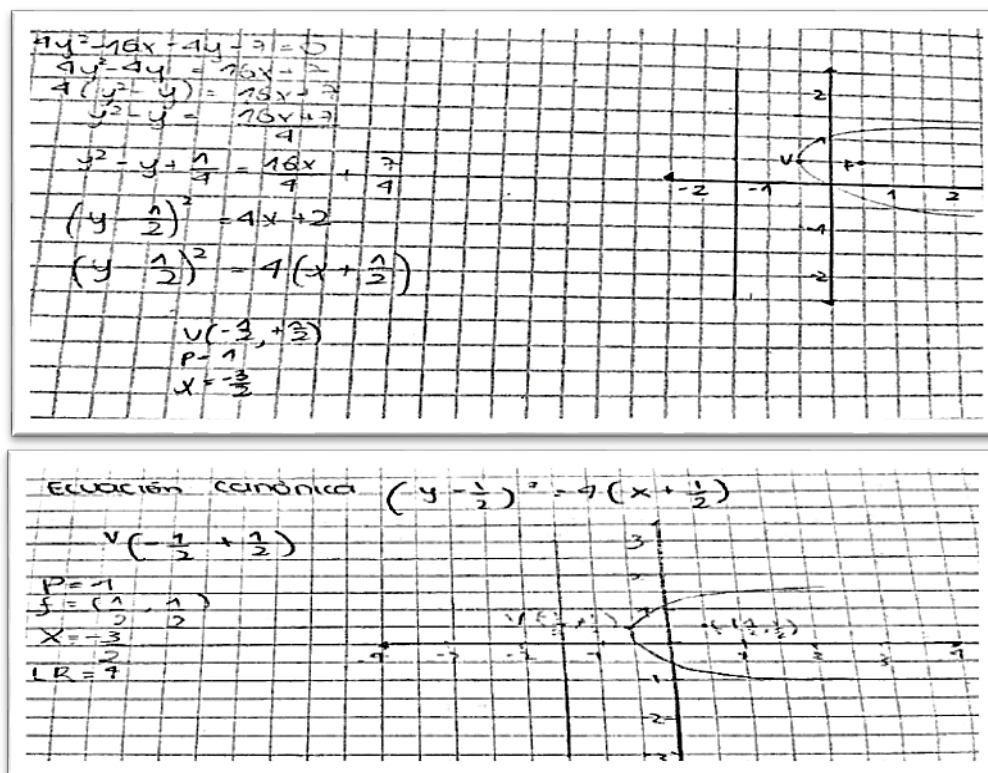 4y² - 16x - 4y - 7 = 0
4y² - 4y = 16x + 7
4(y² - y) = 16x + 7
y² - y = 16x + 7 / 4
y² - y + 1/4 = 16x/4 + 7/4
(y - 1/2)² = 4x + 2
(y - 1/2)² = 4(x + 1/2)
V(-1/2, +1/2)
P = 1
X = -3/2
2
V F
-2 -1 1 2
-1
-2
Ecuación canónica (y - 1/2)² = 4(x + 1/2)
V(-1/2 + 1/2)
P = 1
f = (1/2, 1/2)
X = -3/2
LR = 4
3
2
-4 -3 -2 -1 1 2 3 4
-2
-3